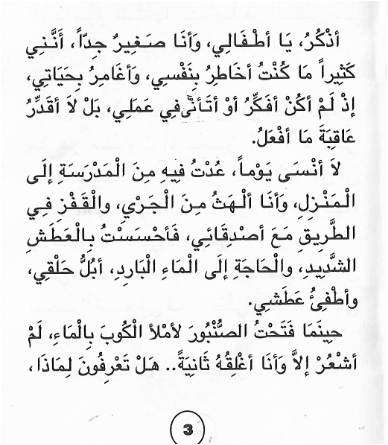 أَذْكُرُ، يَا أَطْفَالِي، وَأَنَا صَغِيرٌ جِدّاً، أَنَّنِي
كَثِيراً مَا كُنْتُ أُخَاطِرُ بِنَفْسِي، وَأُغَامِرُ بِحَيَاتِي،
إِذْ لَمْ أَكُنْ أُفَكِّرُ أَوْ أَتَأَنَّى فِي عَمَلِي، بَلْ لاَ أُقَدِّرُ
عَاقِبَةَ مَا أَفْعَلُ.
لاَ أَنْسَى يَوْماً، عُدْتُ فِيهِ مِنَ الْمَدْرَسَةِ إِلَى
الْمَنْزِلِ، وَأَنَا أَلْهَثُ مِنَ الْجَرْيِ، والْقَفْزِ فِي
الطَّرِيقِ مَعَ أَصْدِقَائِي، فَأَحْسَسْتُ بِالْعَطَشِ
الشَّدِيدِ، والْحَاجَةِ إِلَى الْمَاءِ الْبَارِدِ، أَبُلُّ حَلْقِي،
وأُطْفِئُ عَطَشِي.
حِينَمَا فَتَحْتُ الصُّنْبُورَ لأَمْلأَ الْكُوبَ بِالْمَاءِ، لَمْ
أَشْعُرْ إِلاَّ وَأَنَا أُغْلِقُهُ ثَانِيَةً.. هَلْ تَعْرِفُونَ لِمَاذَا،
3